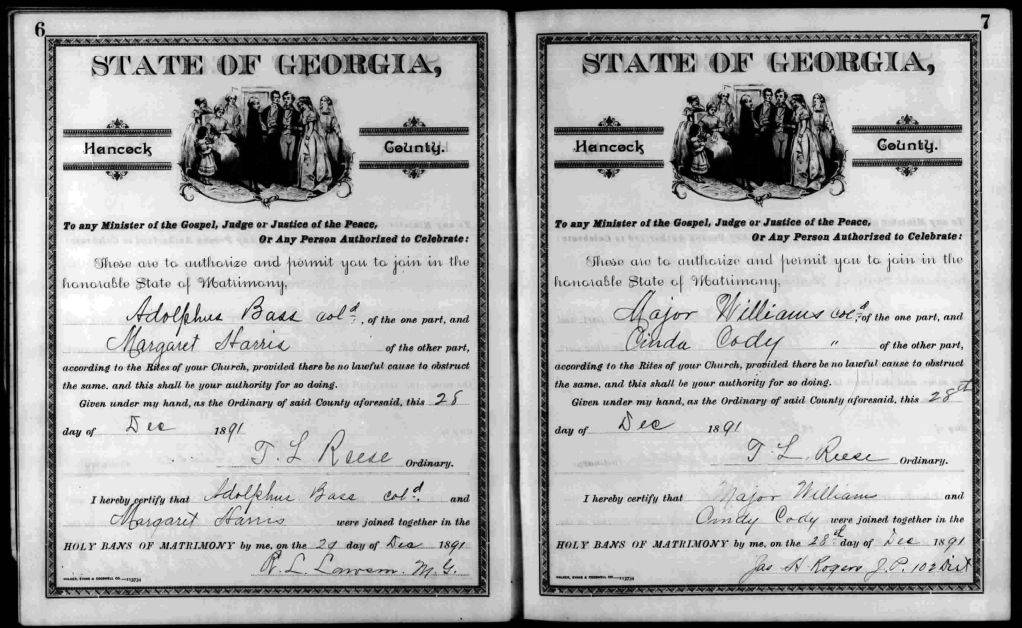 6
STATE OF GEORGIA,
Hancock County.
To any Minister of the Gospel, Judge or Justice of the Peace,
Or Any Person Authorized to Celebrate:
These are to authorize and permit you to join in the
honorable State of Matrimony,
Adolphus Bass col'd, of the one part, and
Margaret Harris of the other part,
according to the Rites of your Church, provided there be no lawful cause to obstruct
the same, and this shall be your authority for so doing.
Given under my hand, as the Ordinary of said County aforesaid, this 28
day of Dec 1891
T. L. Reese Ordinary.
I hereby certify that Adolphus Bass col'd. and
Margaret Harris were joined together in the
HOLY BANS OF MATRIMONY by me, on the 29 day of Dec 1891
L. Lawson. M. G.
WALKER, EVANS & COGSWELL CO.—113734
7
STATE OF GEORGIA,
Hancock County.
To any Minister of the Gospel, Judge or Justice of the Peace,
Or Any Person Authorized to Celebrate:
These are to authorize and permit you to join in the
honorable State of Matrimony,
Major Williams col'd, of the one part, and
Cinda Cody " of the other part,
according to the Rites of your Church, provided there be no lawful cause to obstruct
the same, and this shall be your authority for so doing.
Given under my hand, as the Ordinary of said County aforesaid, this 28th
day of Dec 1891
T. L. Reese Ordinary.
I hereby certify that Major William and
Cindy Cody were joined together in the
HOLY BANS OF MATRIMONY by me, on the 28 day of Dec 1891
Jas H Rogers J. P. 102 Dist
WALKER, EVANS & COGSWELL CO.—113734